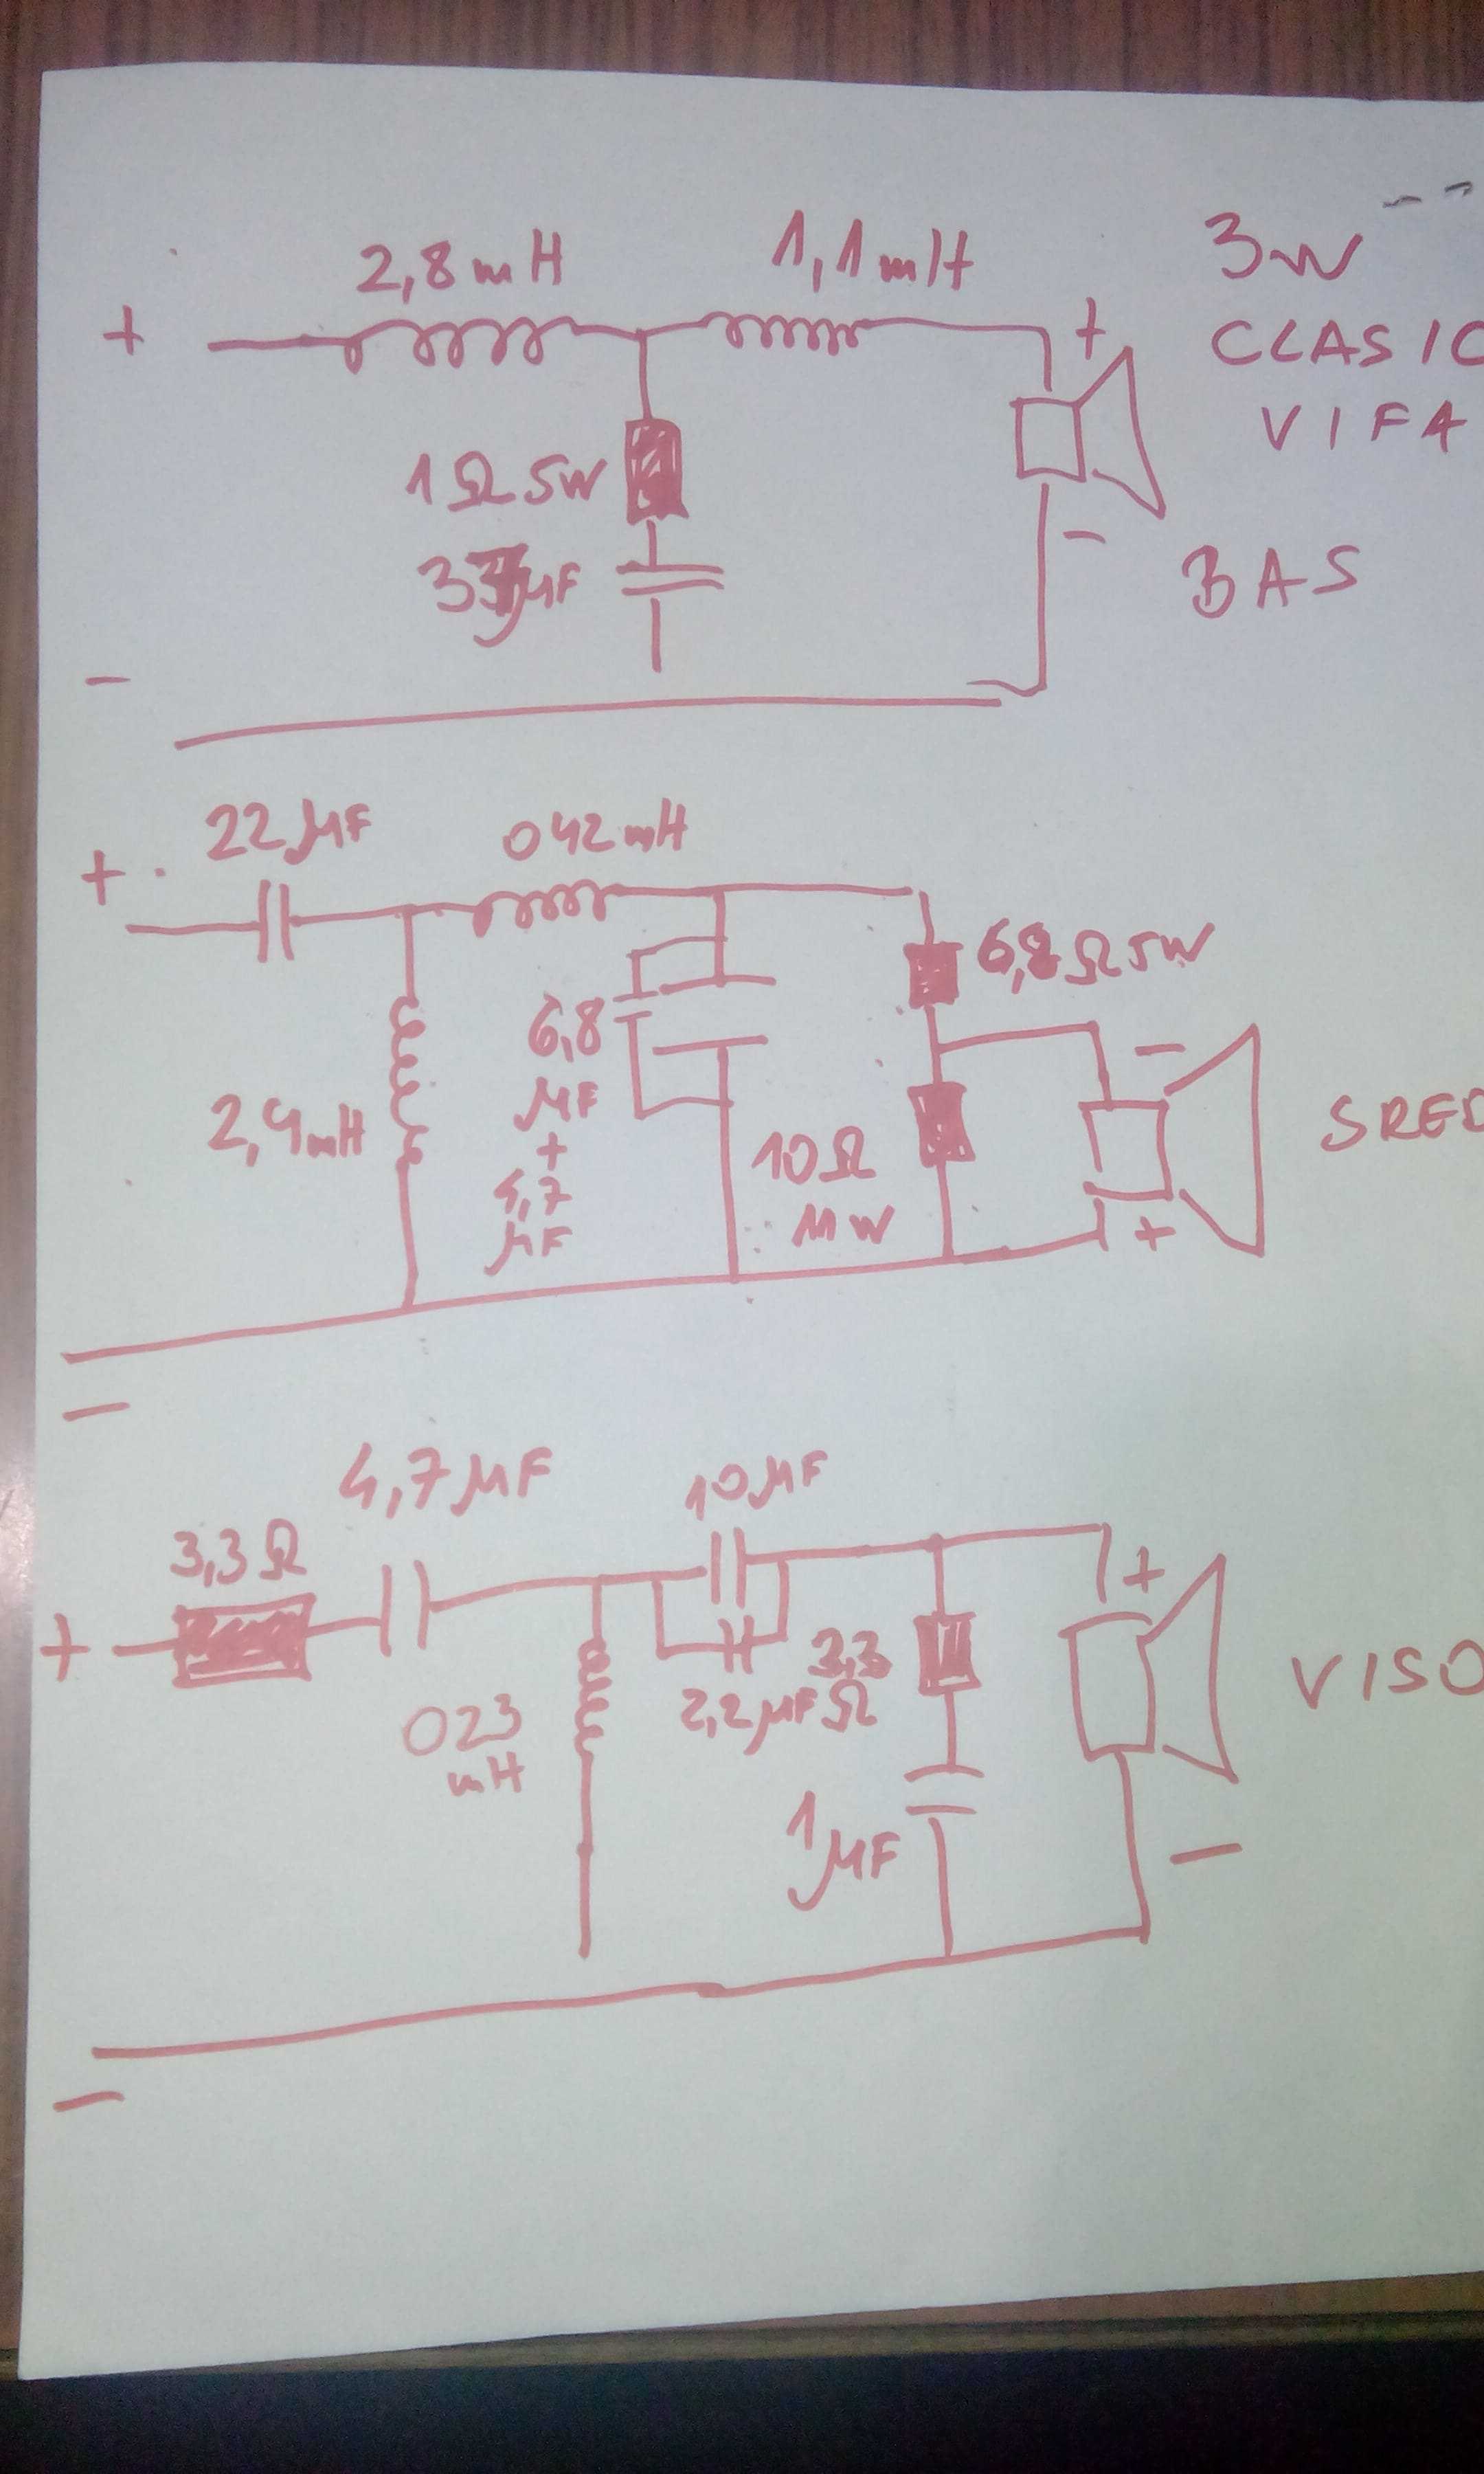 2,8mH
1,1mH
3W
CLASIC
VIFA
+
+
1Ω5W
-
BAS
-
22µF
042mH
+
6,8Ω5W
6,8
µF
+
4,7
µF
-
2,4mH
10Ω
11W
SRED
+
-
4,7µF
10µF
3,3Ω
+
+
3,3
Ω
2,2µF
VISO
023
mH
1µF
-
-